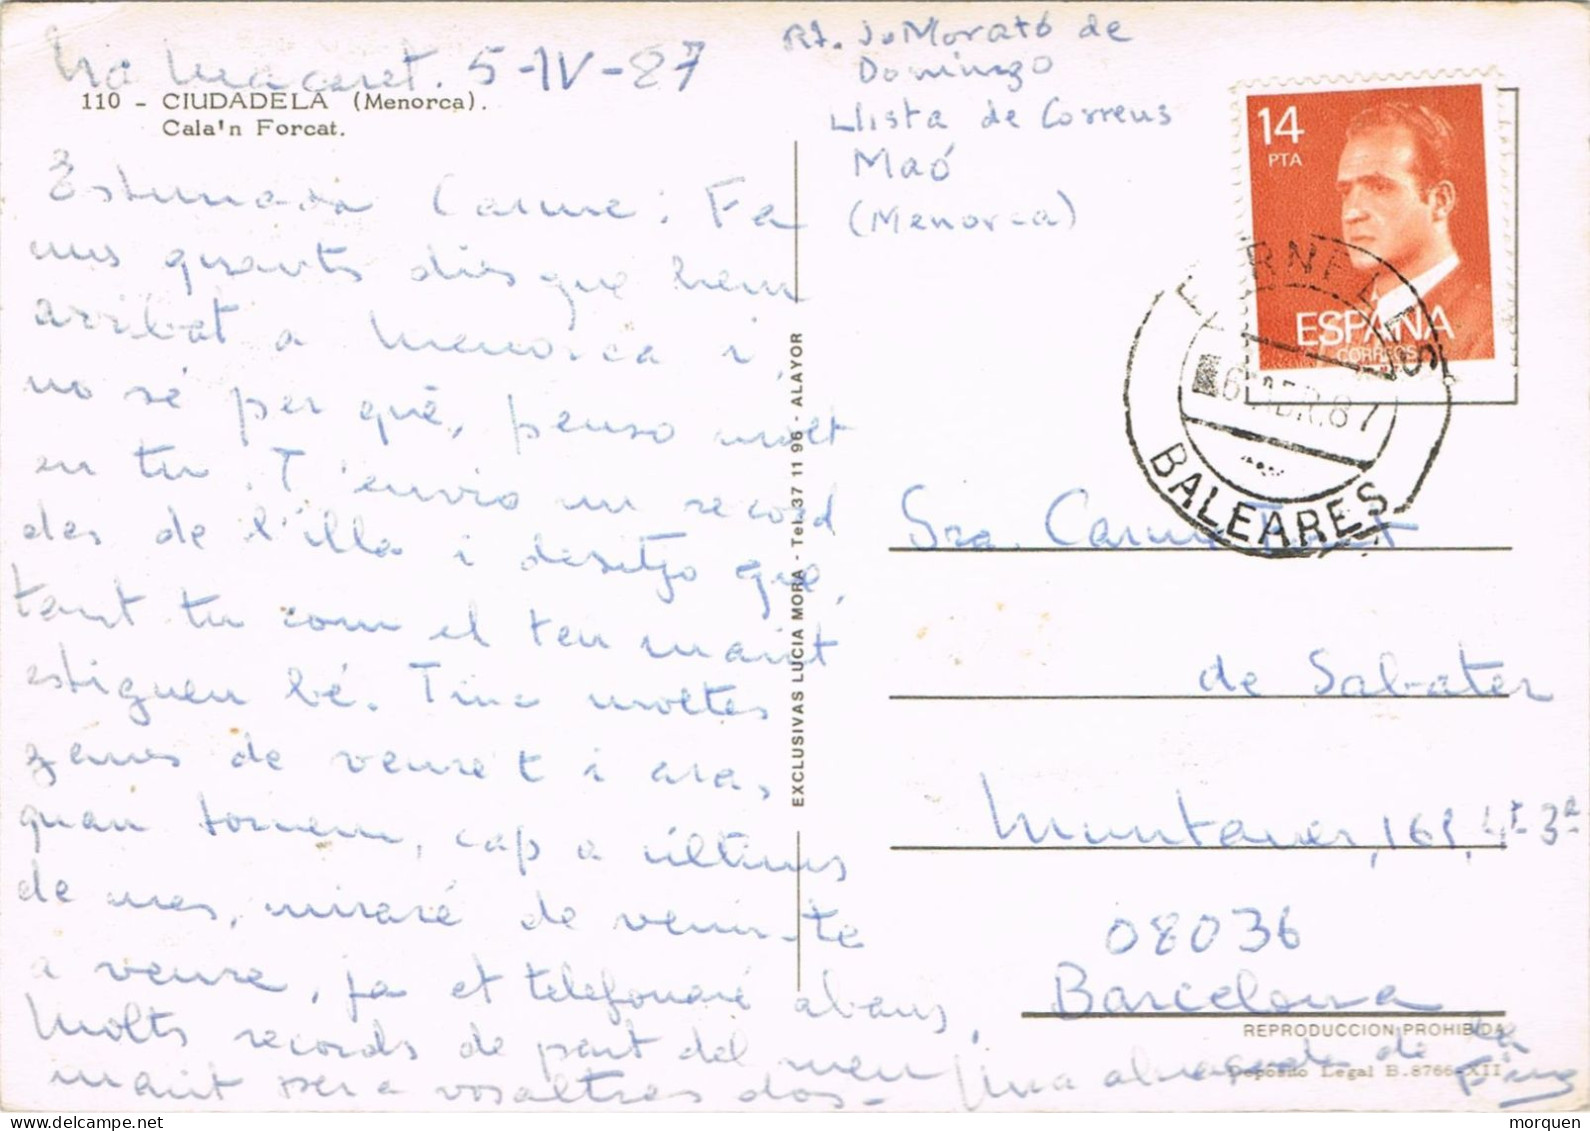 Na Macaret. 5-IV-87
110 - CIUDADELA (Menorca).
Cala'n Forcat.
Estimada Carme: Fa
uns quants dies que hem
arribat a Menorca i,
no sé per què, penso molt
en tu. T'envio un record
des de l'illa i desitjo que,
tant tu com el teu marit
estigueu bé. Tinc moltes
ganes de veure't i ara,
quan tornem, cap a últims
de mes, miraré de venir-te
a veure, ja et telefonaré abans,
Molts records de part del meu
marit per a vosaltres dos-
Una abraçada de la
EXCLUSIVAS LUCIA MORA - Tel. 37 11 96 - ALAYOR
Rt. J. Morató de
Domingo
Llista de Correus
Maó
(Menorca)
14
PTA
ESPAÑA
CORREOS
FORNELLS
6 ABR. 87
BALEARES
Sra. Carme
de Sabater
Muntaner, 161, 4t 3ª
08036
Barcelona
REPRODUCCION PROHIBIDA
Depósito Legal B. 8766-XII
morquen